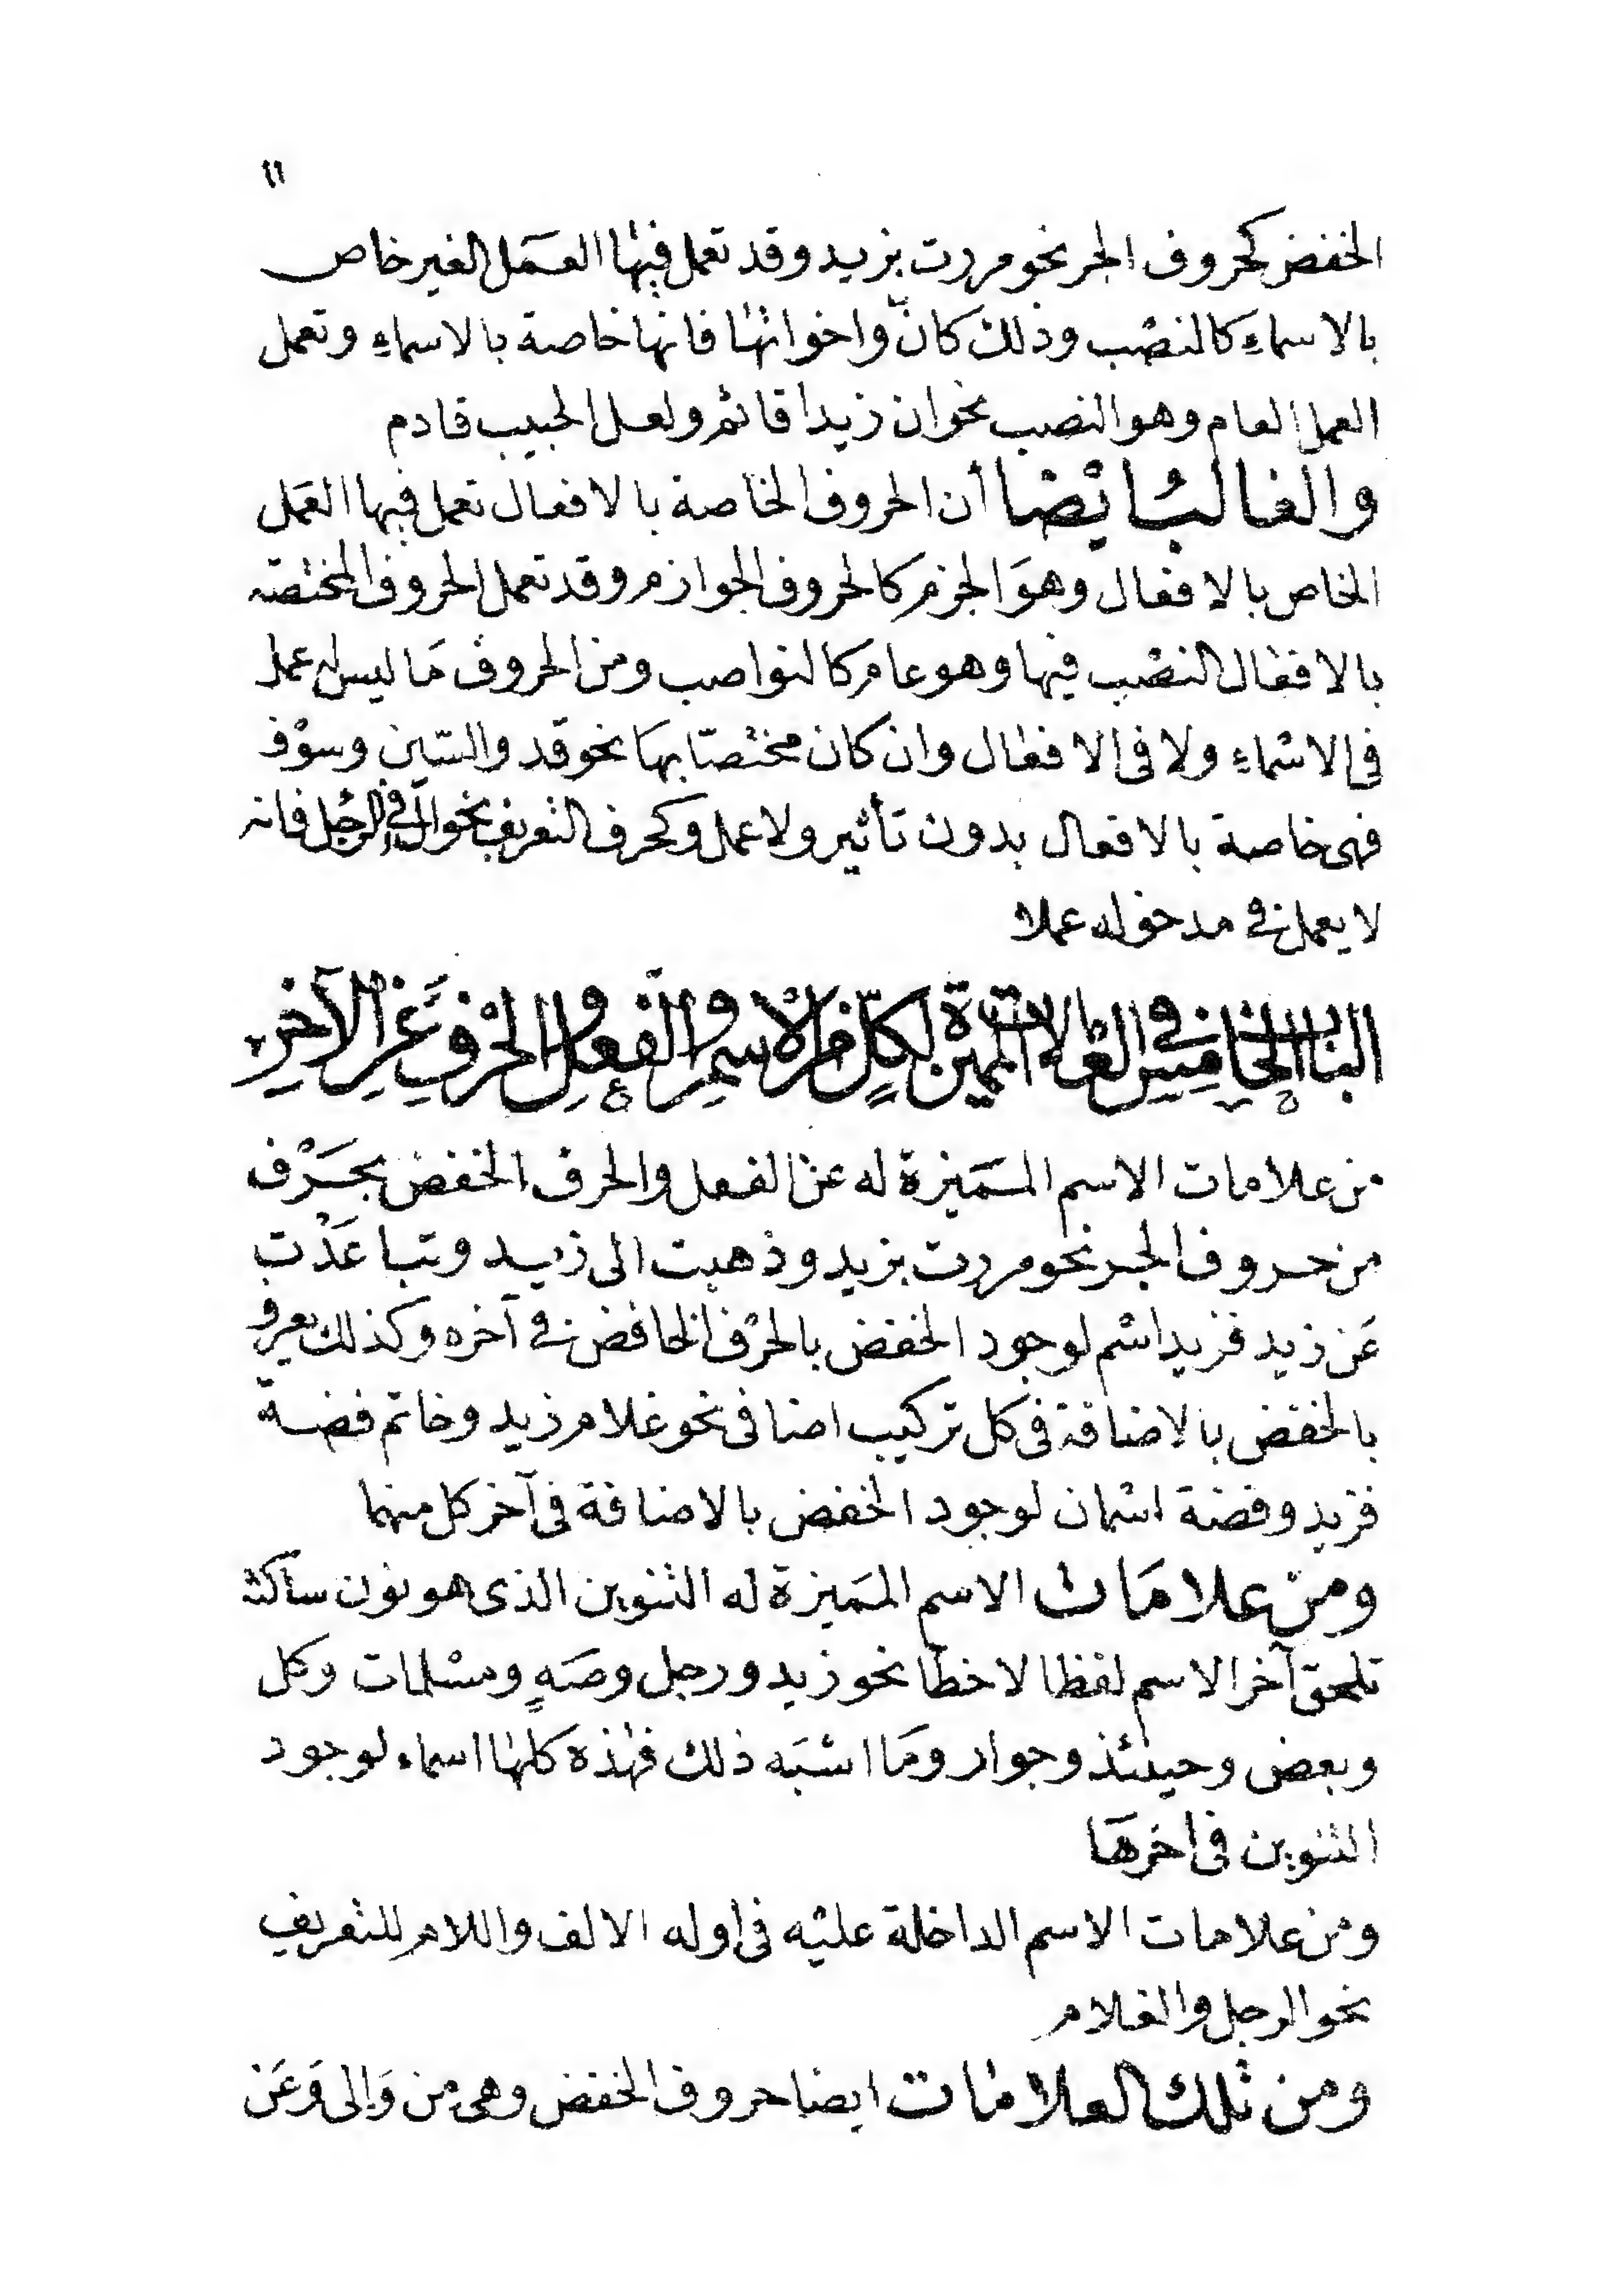 ١١
الخفض كحروف الجر نحو مررت بزيد وقد تعمل فيها العمل الغير خاص
بالاسماءِ كالنصب وذلك كانّ واخواتها فانها خاصة بالاسماءِ وتعمل
العمل العام وهو النصب نحو ان زيدا قائم ولعل الحبيب قادم
والغالبُ ايْضا أن الحروف الخاصة بالافعال تعمل فيها العمَل
الخاص بالافعال وهوَ الجزم كالحروف الجوازم وقد تعمل الحروف المختصّه
بالافعال النصْب فيها وهو عام كالنواصب ومن الحروف مَا ليس له عمل
فى الاسْماءِ ولا فى الافعال وان كان مختصّا بهَا نحو قد والسّين وسوْف
فهى خاصة بالافعال بدون تأثير ولا عمل وكحرف التعريف نحو ال فى الرجُل فانه
لا يعمل فى مدخوله عملا
البَابُ الخَامِسُ فى العَلامات المميّزة لكلٍّ من الاسمِ والفعلِ والحرْفِ عَنِ الآخرِ
من علامات الاسم المَميزة له عن الفعل والحرف الخفض بحَرْف
من حروف الجر نحو مررت بزيد وذهبت الى زيد وتباعَدْت
عَن زيد فزيد اسْم لوجود الخفض بالحرْف الخافض فى آخره وكذلك يعرف
بالخفض بالاضافة فى كل تركيب اضافى نحو غلام زيد وخاتم فضة
فزيد وفضة اسْمان لوجود الخفض بالاضافة فى آخر كل منهما
ومنْ علامَات الاسم المَميزة له التنوين الذى هو نون ساكنة
تلحق آخر الاسم لفظا لا خطّا نحو زيد ورجل وصَهٍ ومسْلمات وكل
وبعض وحينئذ وجوار ومَا اشبَه ذلك فهذه كلها اسماء لوجود
التنوين فى اخرهَا
ومن علامات الاسم الداخلة عليْه فى اوله الالف واللام للتعريف
نحو الرجل والغلام
ومن تلك العلامات ايضا حروف الخفض وهى من وَالى وَعَن